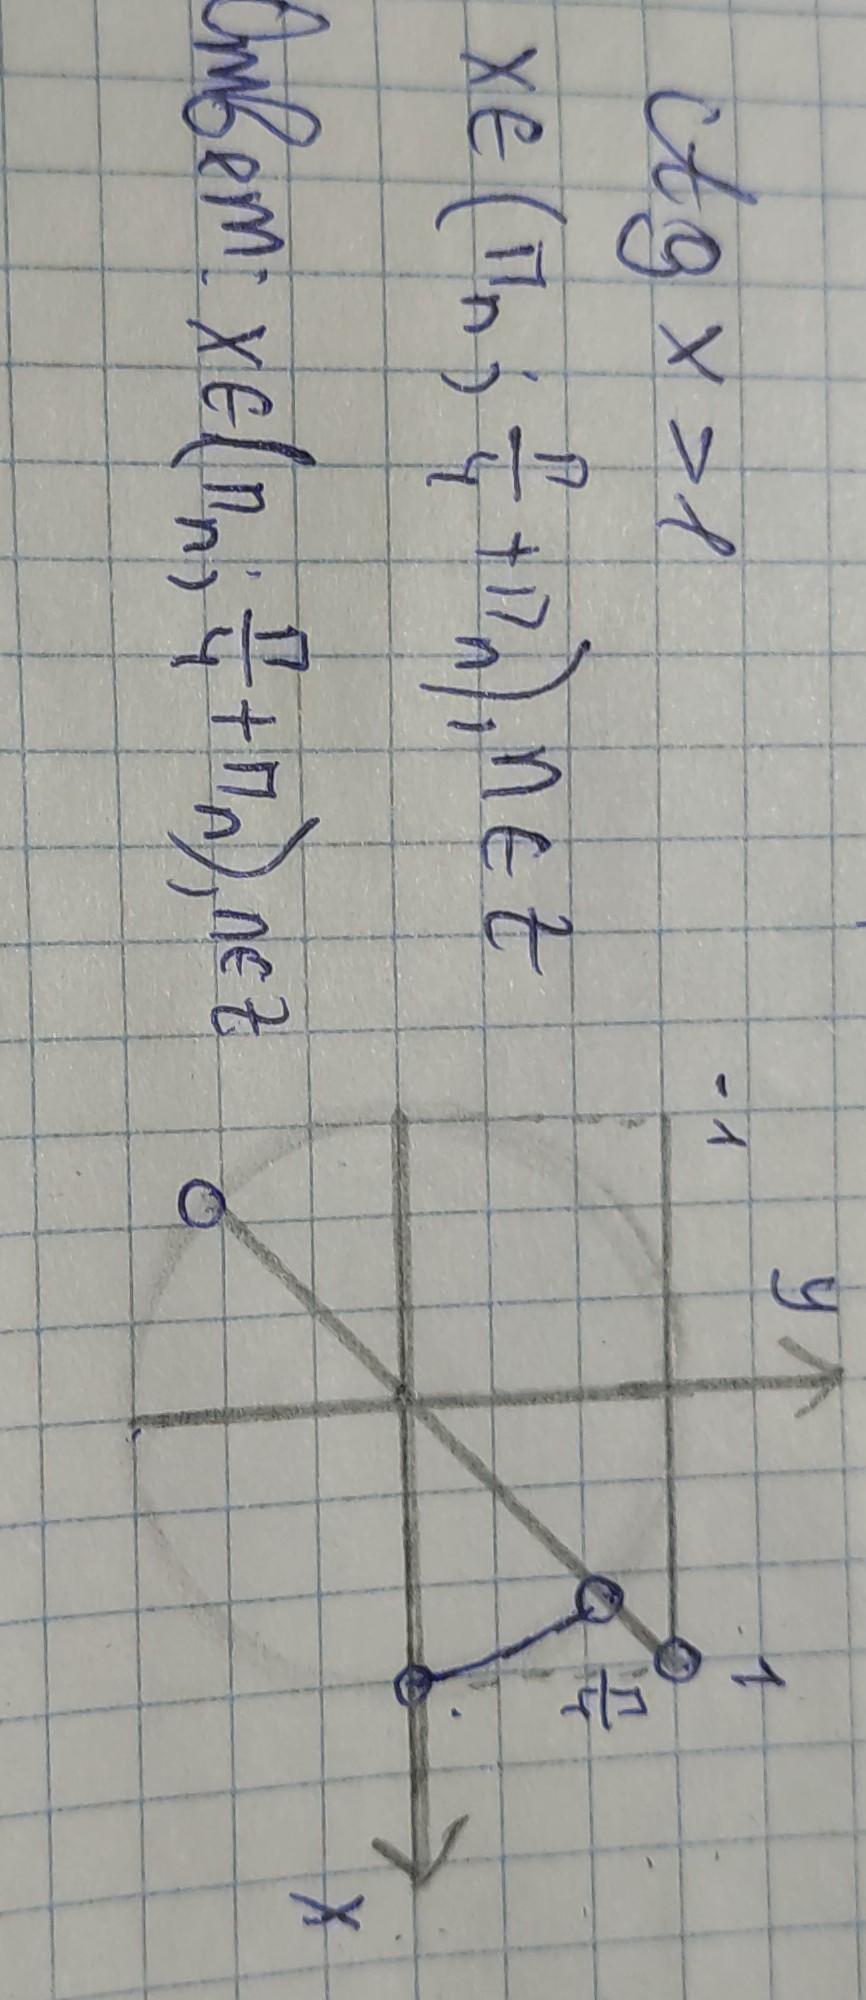 ctg x > 1
x ∈ (πn; π/4 + πn), n ∈ Z
Ответ: x ∈ (πn; π/4 + πn), n ∈ Z
y
-1
1
π/4
x